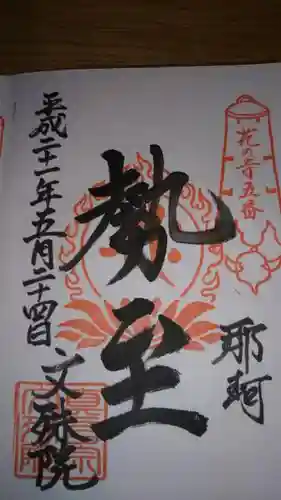 花の寺五番
勢至
耶軻
平成二十一年五月二十四日
文殊院